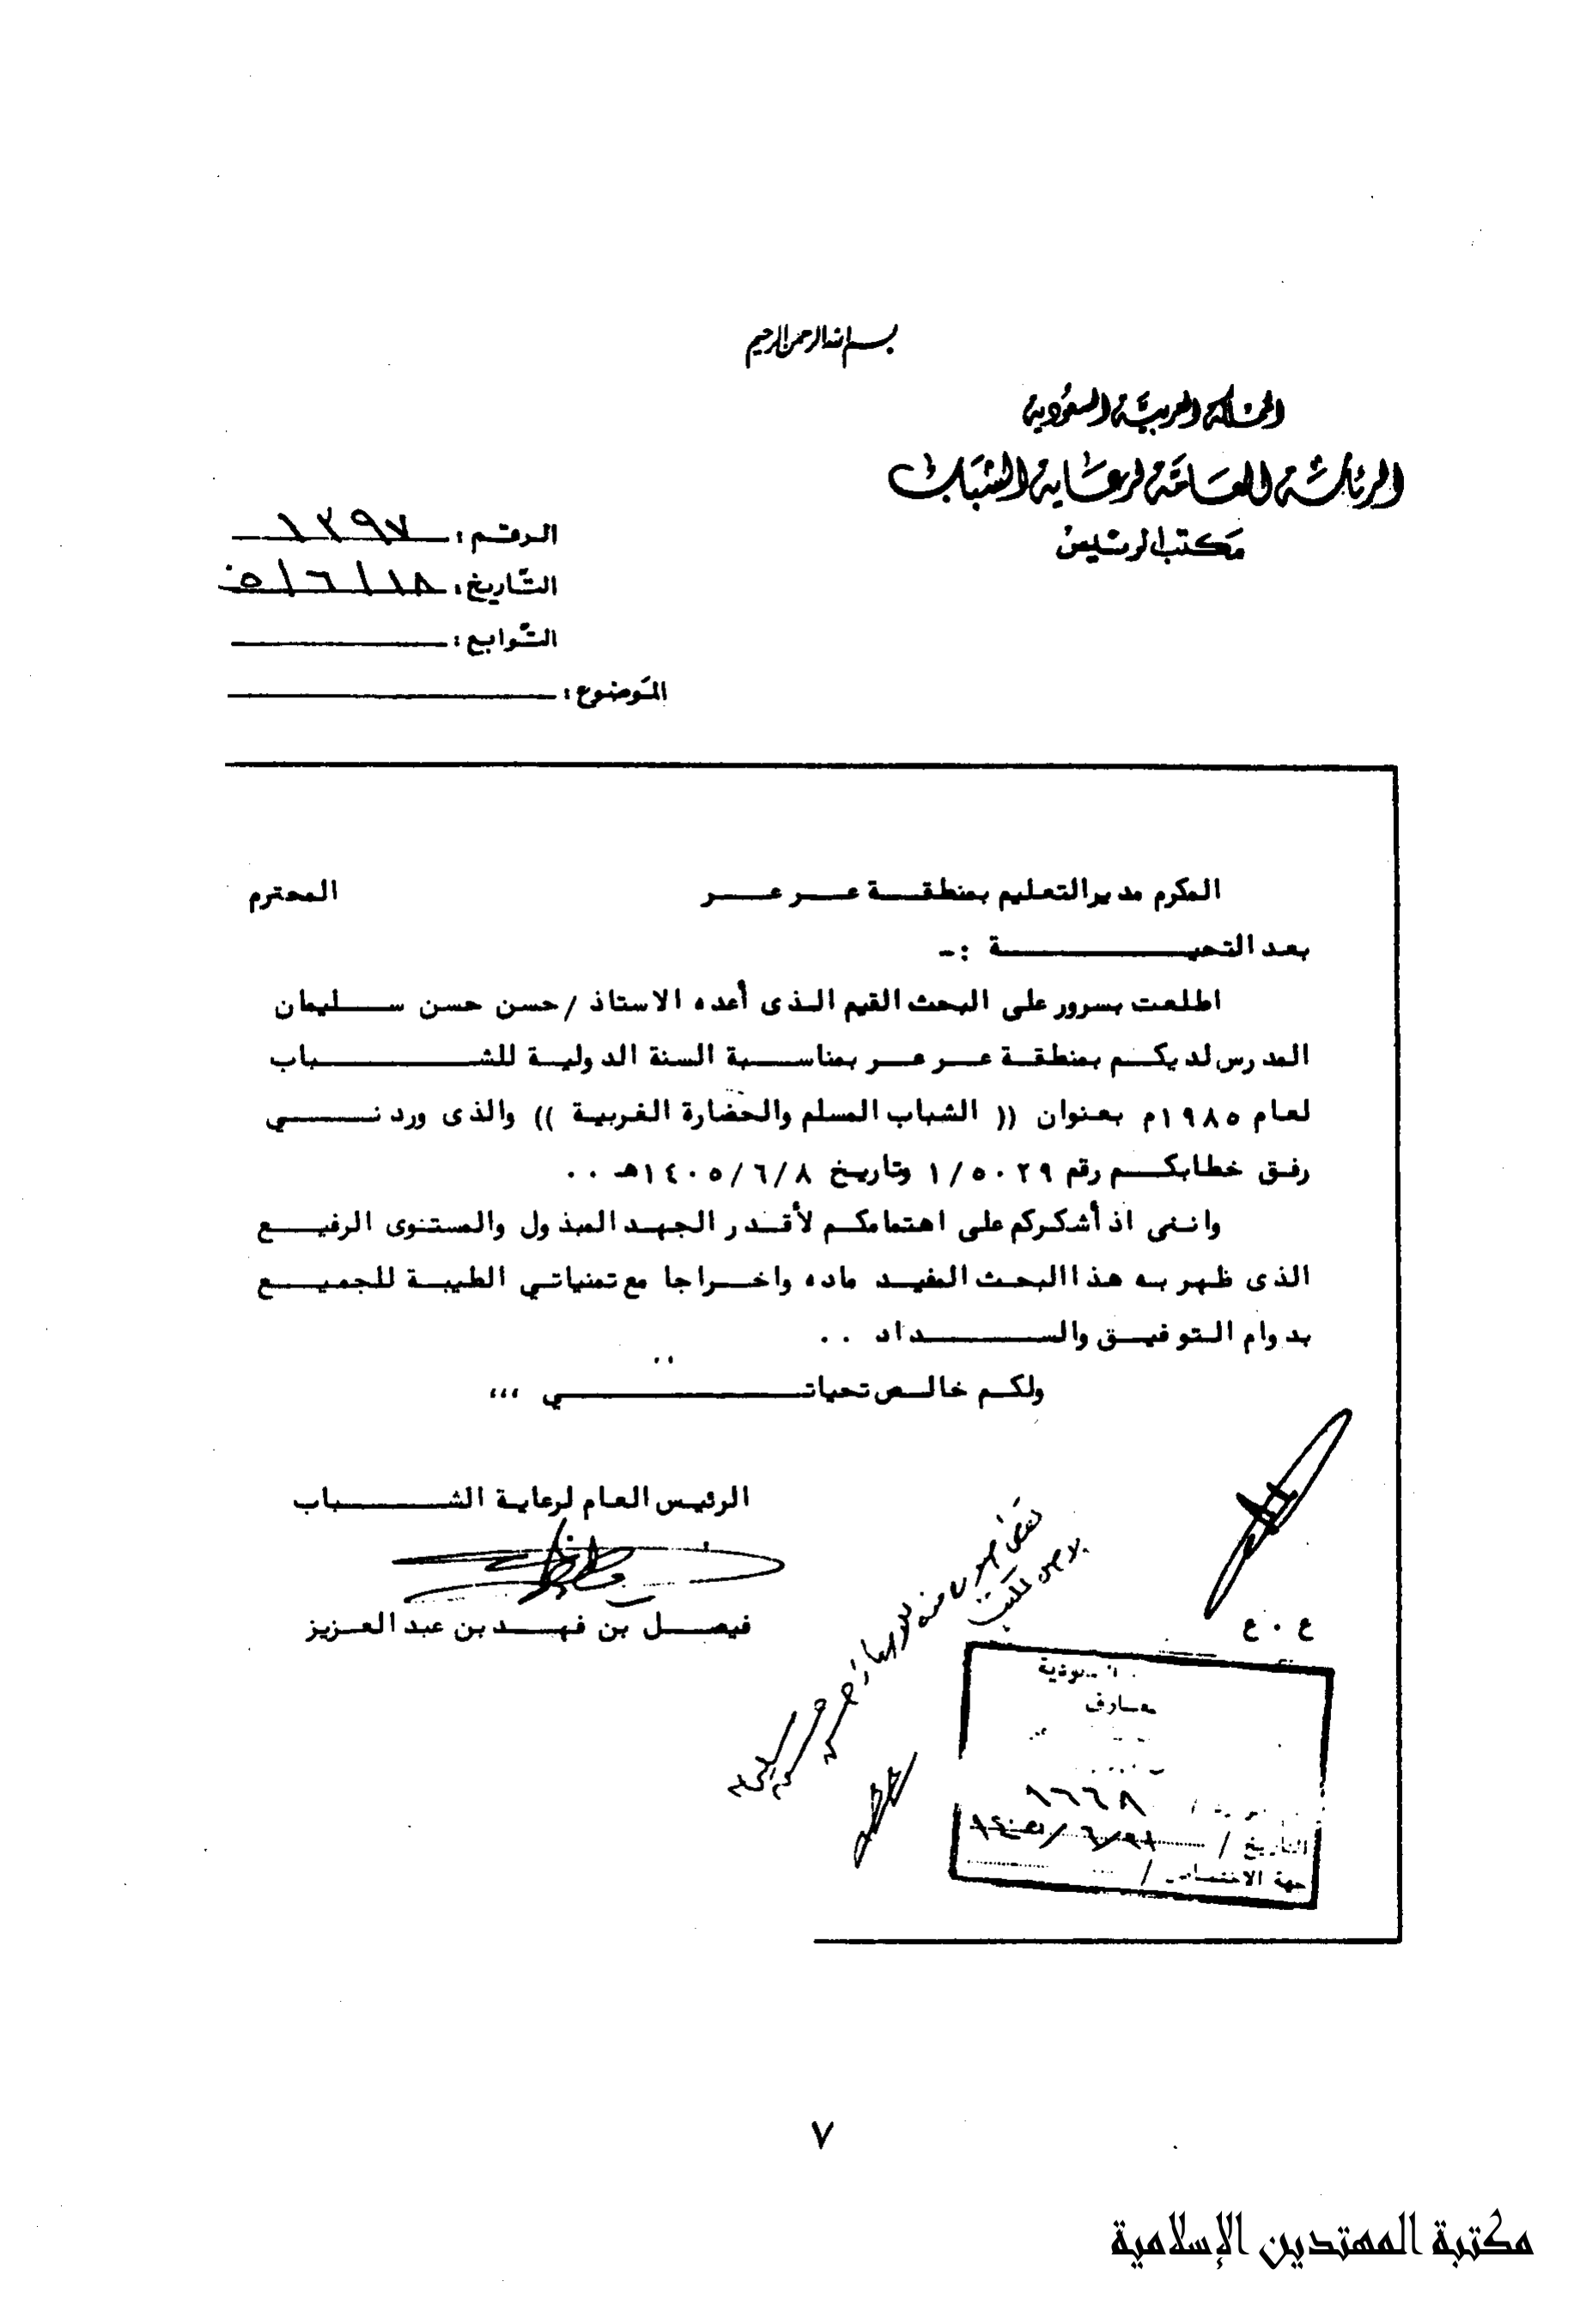 بسم الله الرحمن الرحيم
المملكة العربية السعودية
الرئاسة العامة لرعاية الشباب
مكتب الرئيس
الرقم : ١٣٩٧
التاريخ : ١٨/٦/٥
التوابع :
الموضوع :
المكرم مدير التعليم بمنطقة عرعر المحترم
بعد التحية :-
اطلعت بسرور على البحث القيم الذى أعده الاستاذ / حسن حسن سليمان
المدرس لديكم بمنطقة عرعر بمناسبة السنة الدولية للشباب
لعام ١٩٨٥م بعنوان (( الشباب المسلم والحضارة الغربية )) والذى وردني
رفق خطابكم رقم ١/٥٠٢٩ وتاريخ ١٤٠٥/٦/٨هـ ..
واننى اذ أشكركم على اهتمامكم لأقدر الجهد المبذول والمستوى الرفيع
الذى ظهر به هذا البحث المفيد ماده واخراجا مع تمنياتي الطيبة للجميع
بدوام التوفيق والسداد ..
ولكم خالص تحياتي ،،،
الرئيس العام لرعاية الشباب
فيصل بن فهد بن عبد العزيز
ع . ع
التاريخ /
جهة الاختصاص /
٧
مكتبة المهتدين الإسلامية